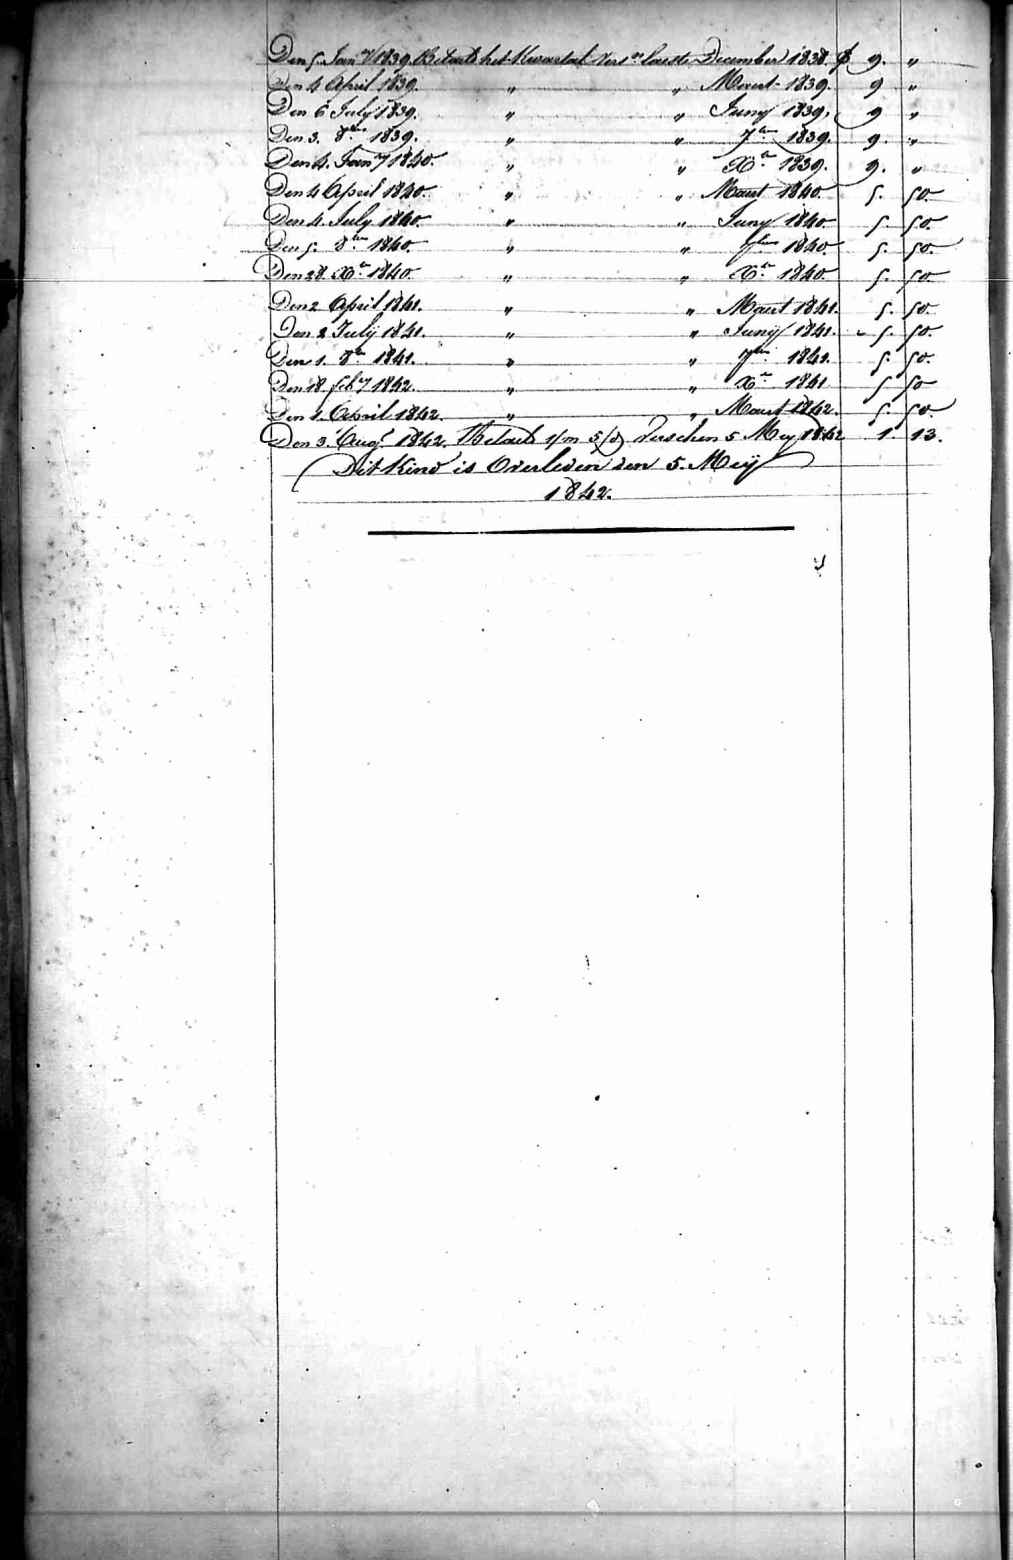 Den 5 Jan'y 1839. Betaalt het Kwartaal Versn laaste December 1838. ƒ 9. "
Den 4 April 1839. " " Maart 1839. 9 "
Den 6 July 1839. " " Juny 1839. 9 "
Den 3. 8ber 1839. " " 7ber 1839. 9. "
Den 4. Jan'y 1840. " " Xbr 1839. 9. "
Den 4 April 1840. " " Maart 1840 5. 50.
Den 4. July 1840. " " Juny 1840 5. 50.
Den 5. 8ber 1840. " " 7ber 1840. 5. 50.
Den 28. Xbr 1840. " " Xbr 1840. 5. 50
Den 2 April 1841. " " Maart 1841. 5. 50.
Den 2 July 1841. " " Juny 1841. 5. 50.
Den 1. 8ber 1841. " " 7ber 1841. 5. 50.
Den 18 feb'y 1842. " " Xbr 1841 5 50
Den 1. April 1842. " " Maart 1842. 5. 50.
Den 3. Aug. 1842. Betaalt 1/m 5/d Verschen 5 Mey 1842 1. 13.
Dit Kind is Overleden den 5. Meij
1842.